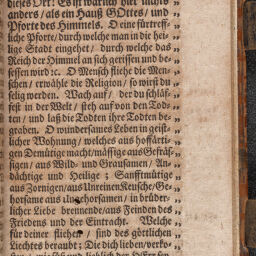 dieses Ort: Es ist warlich hier nichts „
anders / als ein Hauß GOttes / und „
Pforte des Himmels. O eine fürtreff- „
liche Pforte / durch welche man in die hei- „
lige Stadt eingehet / durch welche das „
Reich der Himmel an sich gerissen und be- „
sessen wird ꝛc. O Mensch fliehe die Men- „
schen / erwähle die Religion / so wirst du „
selig werden. Wach auf / der du schläf- „
fest in der Welt / steh auf von den Tod- „
ten / und laß die Todten ihre Todten be- „
graben. O wundersames Leben in geist- „
licher Wohnung / welches aus hoffärti- „
gen Demütige macht / mässige aus Gefräß- „
sigen / aus Wild- und Grausamen / An- „
dächtige und Heilige ; Sanfftmütige „
aus Zornigen / aus Unreinen Keusche / Ge- „
horsame aus Ungehorsamen / in brüder- „
licher Liebe brennende / aus Feinden des „
Friedens und der Eintracht. Welche „
für deiner fliehen / sind des göttlichen „
Liechtes beraubt ; Die dich lieben / verko- „